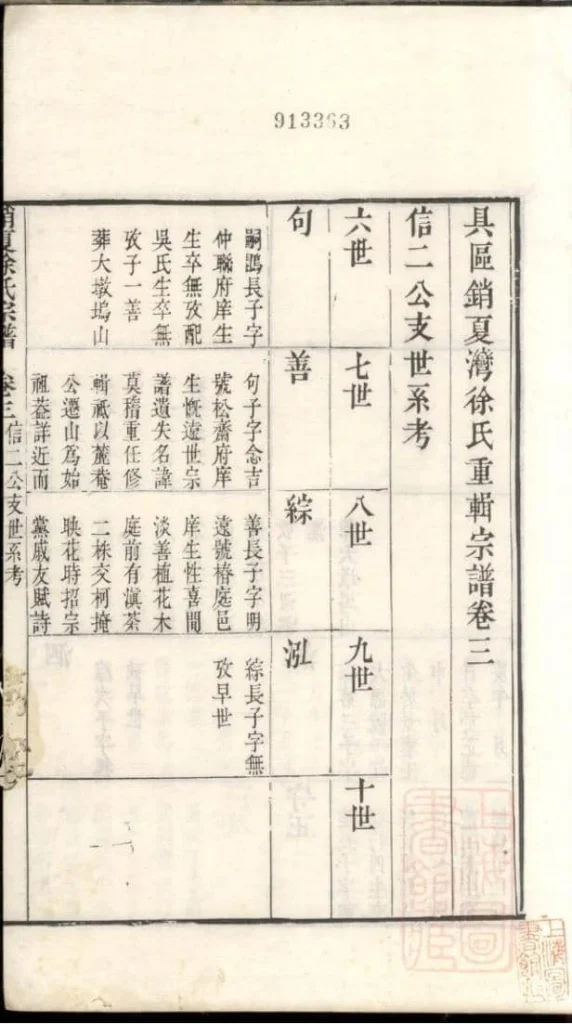 913363
具區銷夏灣徐氏重輯宗譜卷三
信二公支世系考
六世
七世
八世
九世
十世
句
嗣長子字
仲聯府庠生
生卒無攷配
吳氏生卒無
攷子一善
葬大墩塢山
善
句子字念吉
號松齋府庠
生慨遠世宗
譜遺失名諱
莫稽重任修
輯祗以麓菴
公遷山為始
祖葢詳近而
綜
善長子字明
遠號椿庭邑
庠生性喜閒
淡善植花木
庭前有滇茶
二株交柯掩
映花時招宗
黨戚友賦詩
泓
綜長子字無
攷早世
銷夏徐氏宗譜 卷三 信二公支世系考
上海圖書館藏